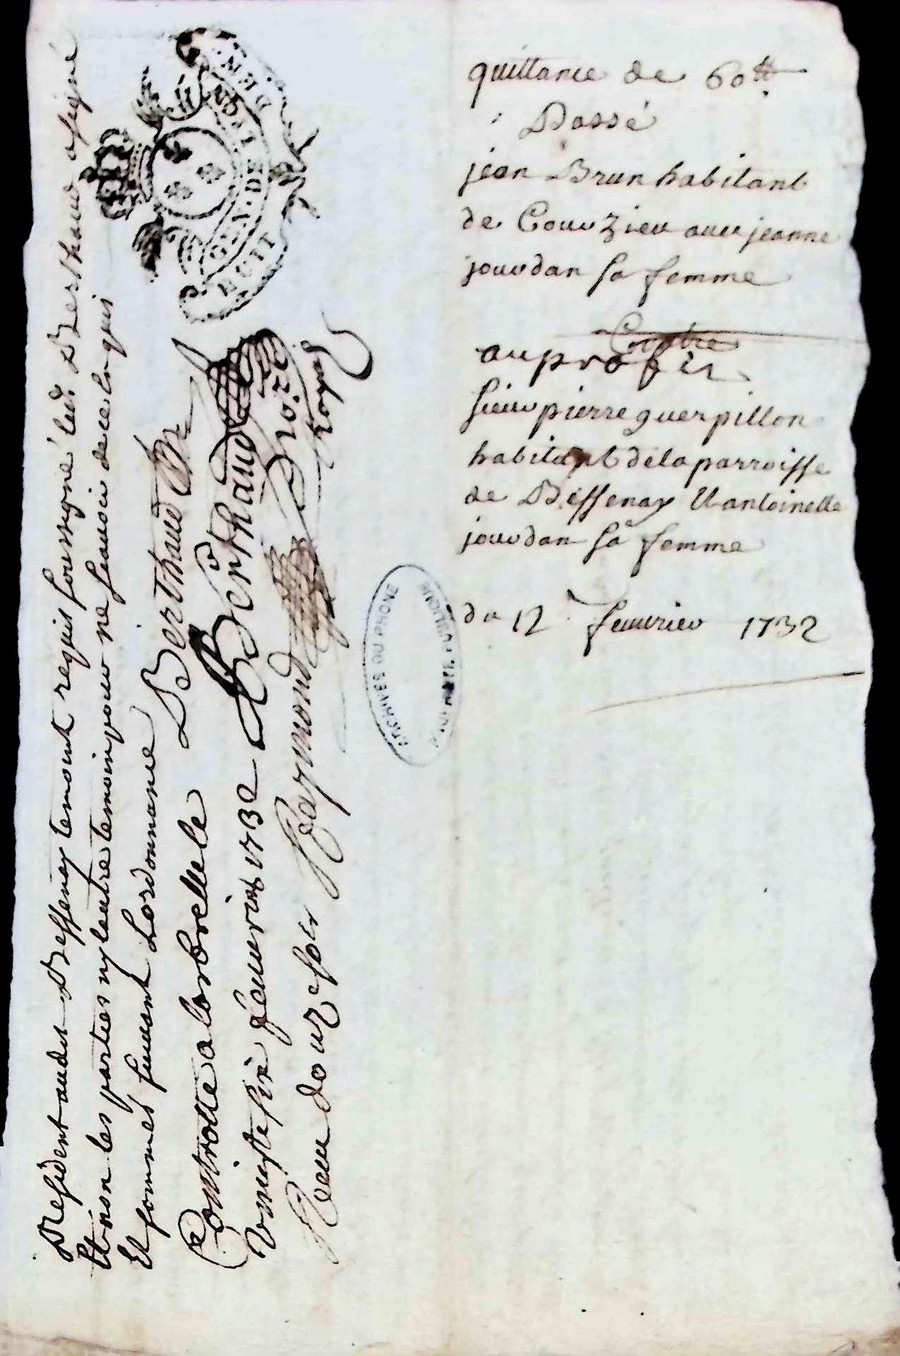 quittance de 60tt
Passé
jean Brun habitant
de Courzieu avec jeanne
jourdan sa femme
Contre
au profit
sieur pierre guerpillon
habitant de la parroisse
de Bessenay Et antoinette
jourdan sa femme
du 12 feuurier 1732
Resident audit Bessenay temoint requis soussigné ledt Berthaud a signé
Et non les parties ny lautre temoin pour ne scauoir de ce enquis
Et sommes suivant Lordonnance Berthaud
Controlle a larbrelle le
vingt six feuurier 1732 Berthaud No.re
Receu douze sols Raymond Royal
GEN. DE LYON
ARCHIVES DU RHONE